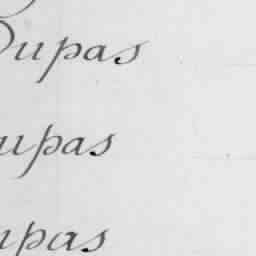 Dupas
upas
upas